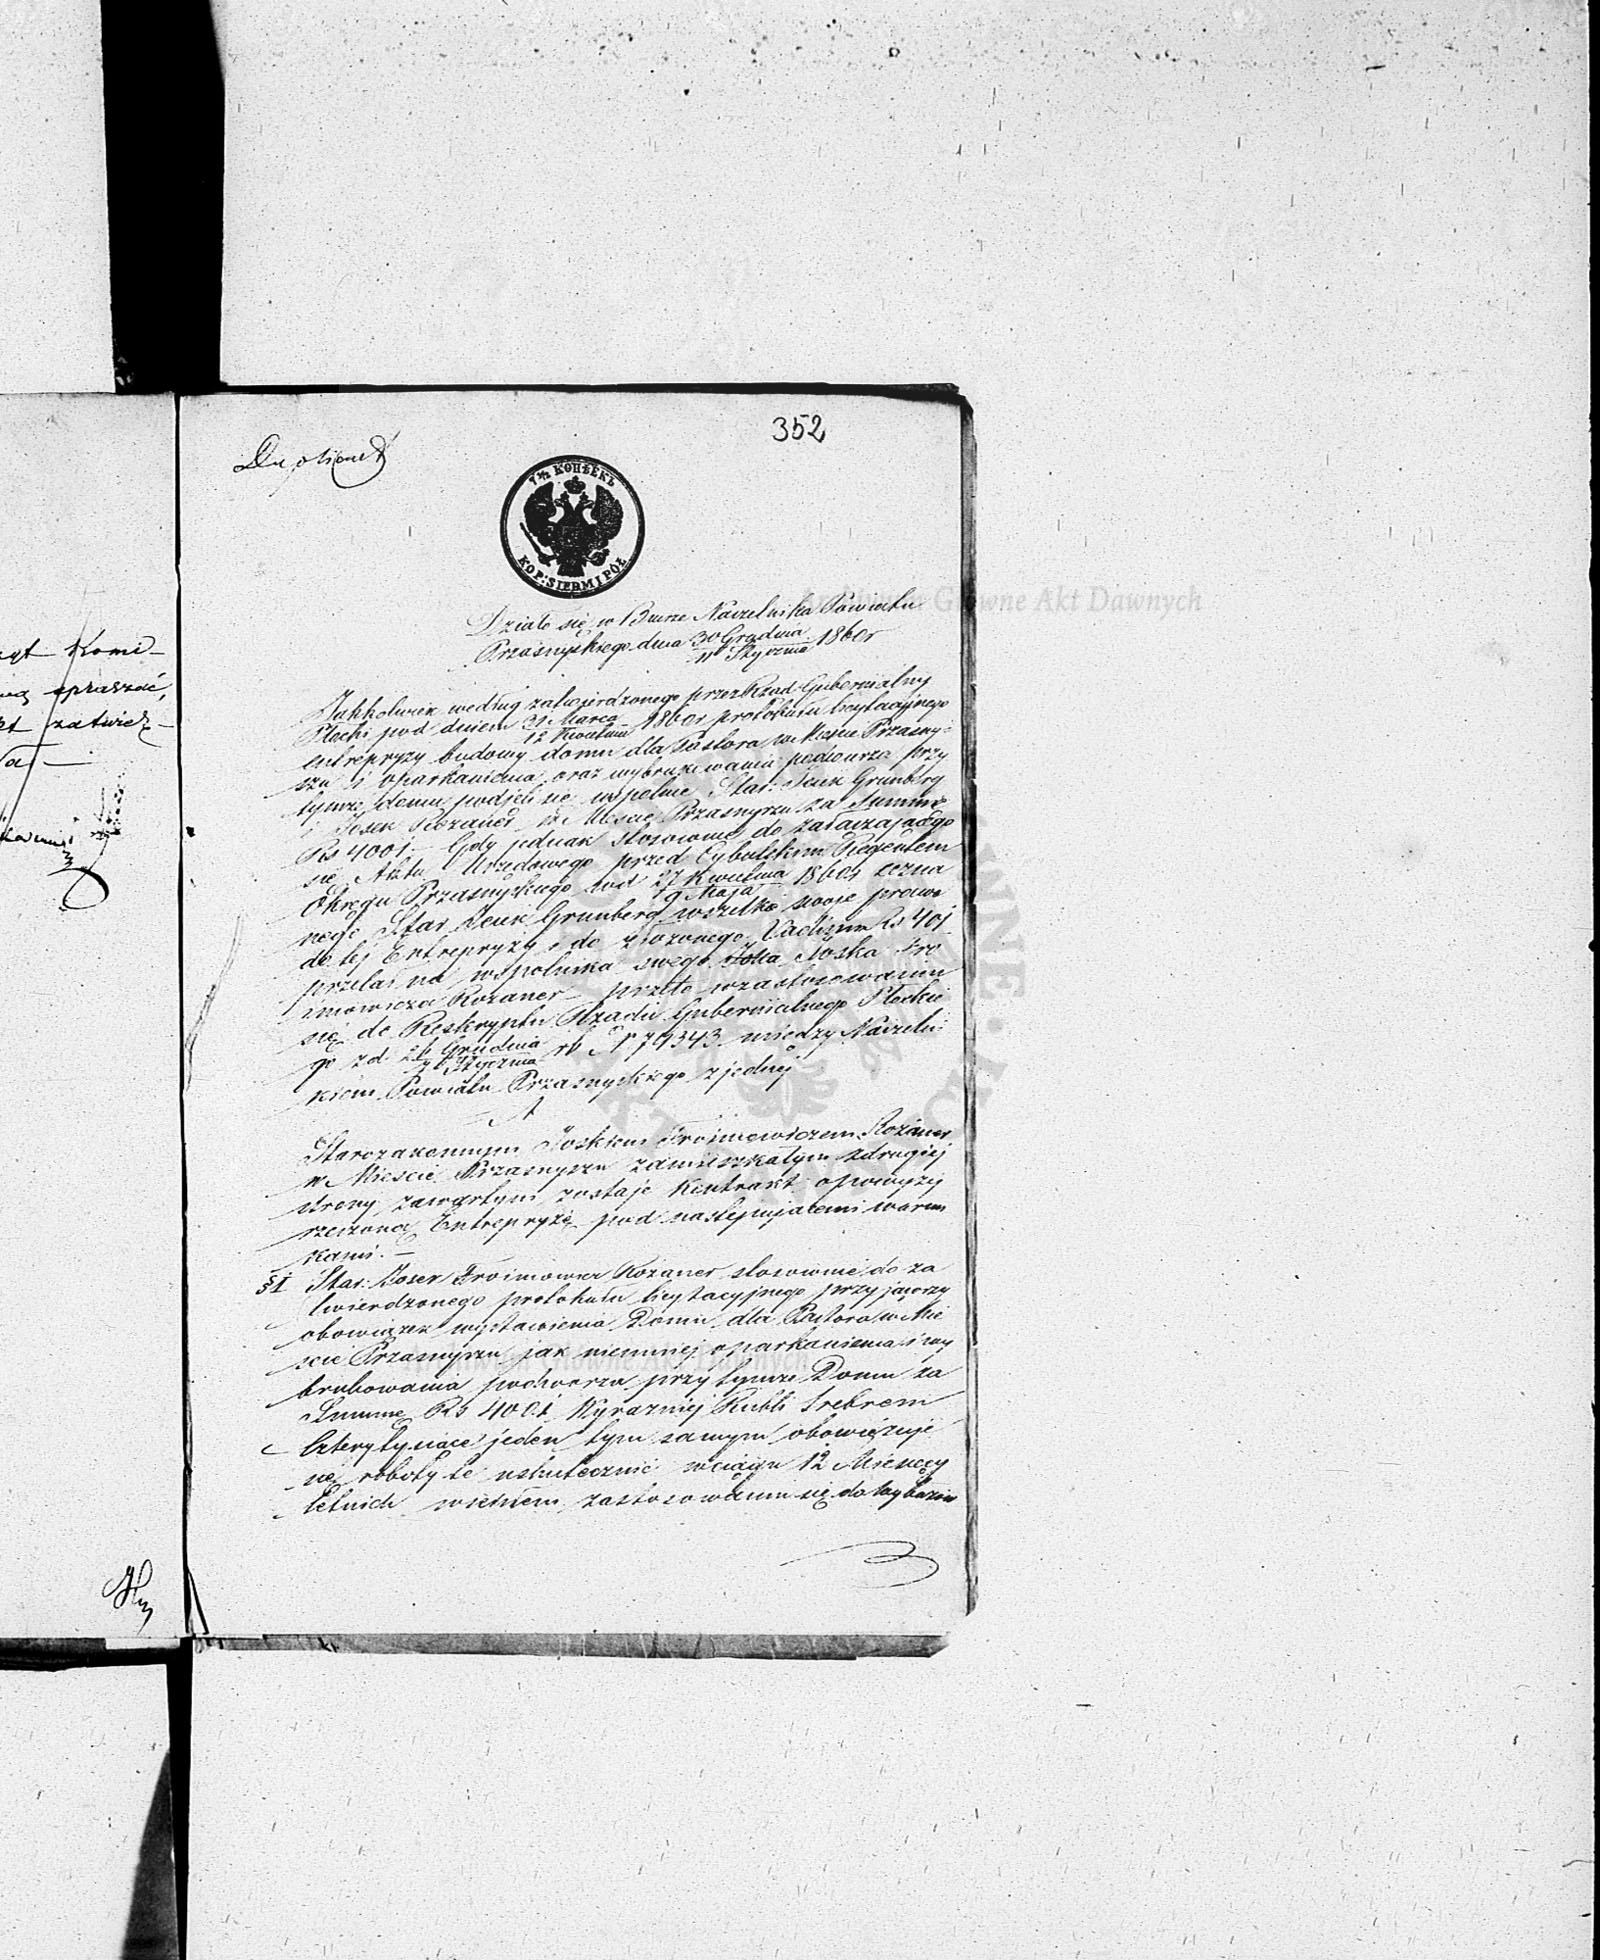 352
Duplicat
7½ КОПѢЕКЪ
KOP: SIEDM I PÓŁ
Działo się w Biurze Naczelnika Powiatu
Przasnyskiego dnia 30 Grudnia / 11 Stycznia 1860r
Jakkolwiek według zatwierdzonego przez Rząd Gubernialny
Płocki pod dniem 31 Marca / 12 Kwietnia 1860r protokułu licytacyjnego
entrepryzy budowy domu dla Pastora w Mieście Przasny-
szu i oparkanienia oraz wybrukowania podwurza przy
tymże domu podjeli się wspolnie Star: Icek Grunberg
i Josek Rozaner w Mieście Przasnyszu za Summę
Rs 4001. – Gdy jednak stosownie do załaczajacego
się Aktu Urzędowego przed Cybulskim Rejentem
Okręgu Przasnyskiego pod 27 Kwietnia / 9 Maja 1860r zezna
nego Star Icek Grunberg wszelkie swoje prawa
do tej Entrepryzy i do złozonego Vadium Rs 401
przelał na wspolnika swego Joska Fro
imowicza Rozaner – przeto w zastosowaniu
się do Reskryptu Rządu Gubernialnego Płockie
go z d 26 Grudnia / 7 Stycznia rb Nr 79343 miedzy Naczelni
kiem Powiatu Przasnyskiego z jednej
A
Starozakonnym Joskiem Froimowiczem Rozaner
w Mieście Przasnyszu zamieszkałym z drugiej
strony zawartym zostaje Kontrakt o powyzej
rzeczoną Entrepryzę pod następujacemi warun
kami. –
§ 1 Star: Josek Froimowicz Rozaner stosownie do za
twierdzonego protokułu licytacyjnego przyjmuje
obowiązek wystawienia Domu dla Pastora w Mie
scie Przasnyszu jak niemniej oparkanienia i wy
brukowania podworza przy tymze Domu za
Summę Rs 4001 Wyrazniej Rubli Srebrem
Czterytysiace jeden tym samym obowięzuje
się roboty te uskutecznić w ciągu 12 Miesięcy
letnich w scisłem zastosowaniu się do
Archiwum Główne Akt Dawnych
Archiwum Główne Akt Dawnych